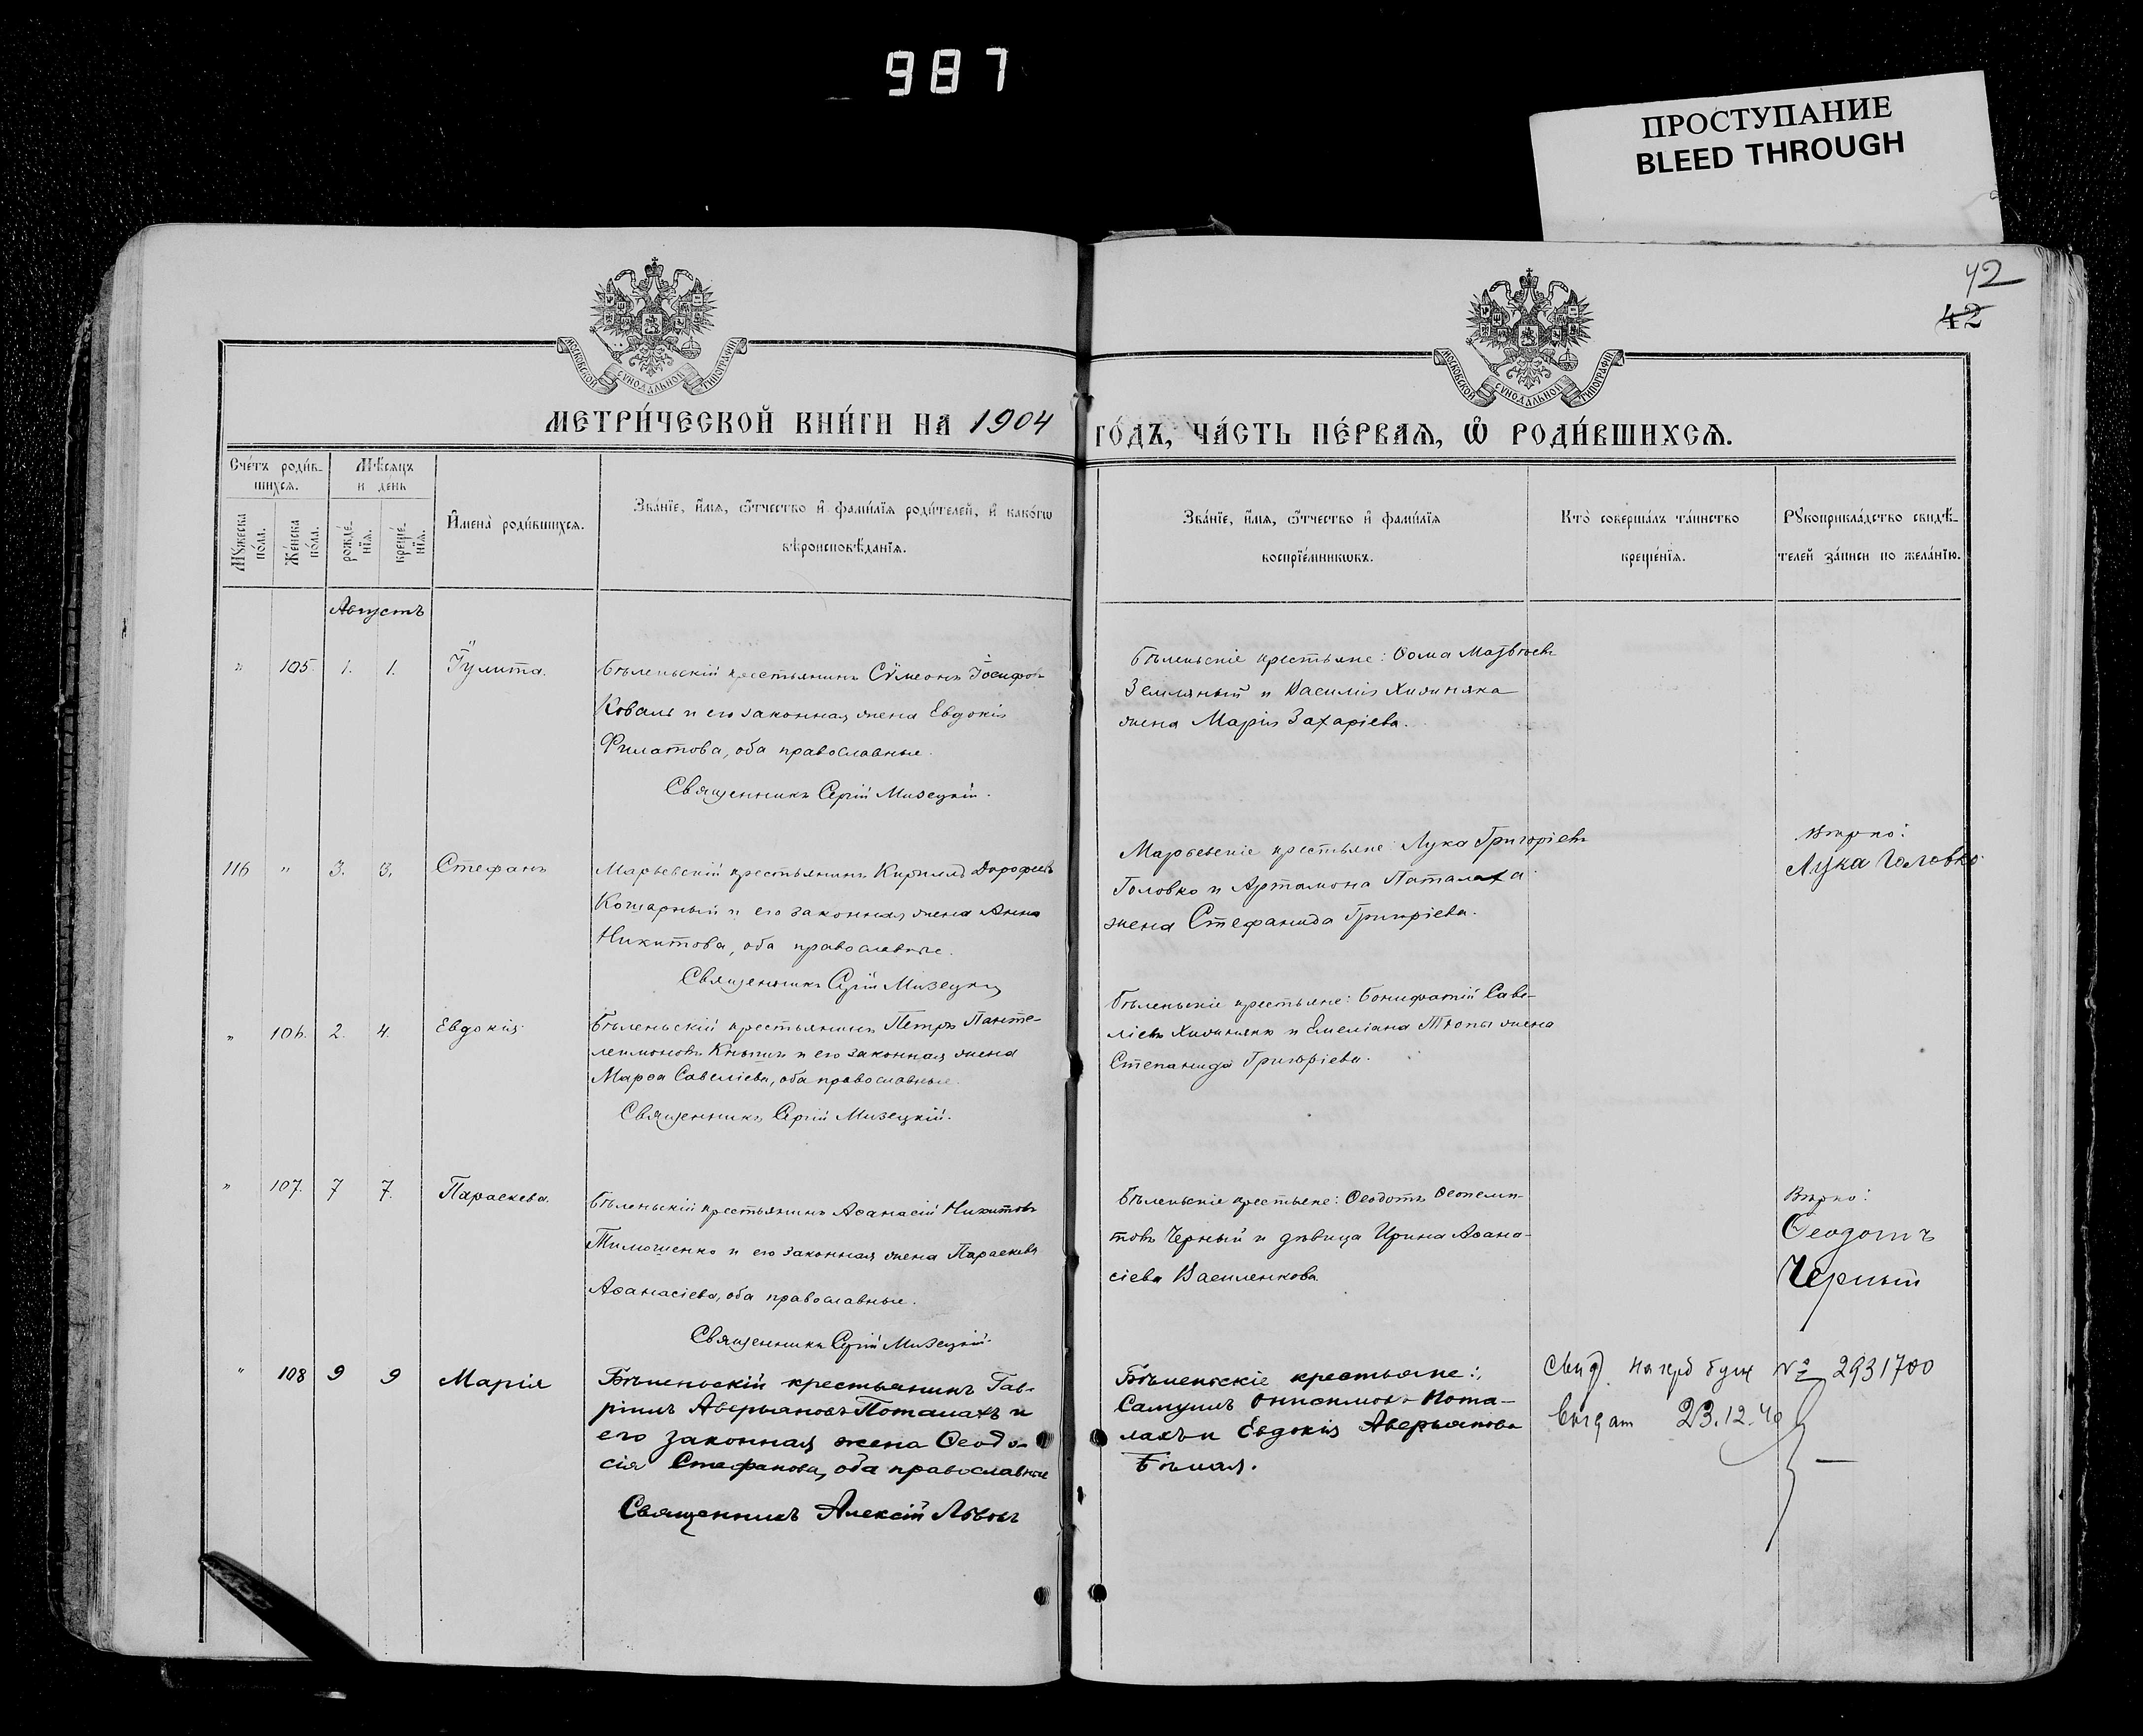 987
ПРОСТУПАНИЕ
BLEED THROUGH
42
42
МОСКОВСКОЙ СѴНОДАЛЬНОЙ ТИПОГРАФІИ
МОСКОВСКОЙ СѴНОДАЛЬНОЙ ТИПОГРАФІИ
МЕТРИ́ЧЕСКОЙ КНИ́ГИ НА 1904 ГО́ДЪ, ЧА́СТЬ ПЕ́РВАѦ, Ѡ҆ РОДИ́ВШИХСѦ.
Сче́тъ роди́в-
шихсѧ.
Мѣ́сѧцъ
и день
Мꙋ́жеска
по́ла.
Же́нска
по́ла.
рожде́-
нїѧ.
креще́-
нїѧ.
И҆мена̀ роди́вшихсѧ.
Зва́нїе, и҆́мѧ, ѻ҆́тчество и҆ фами́лїѧ роди́телей, и҆ како́гѡ
вѣроисповѣ́данїѧ.
Зва́нїе, и҆́мѧ, ѻ҆́тчество и҆ фами́лїѧ
воспрїе́мникѡвъ.
Кто̀ соверша́лъ та́инство
креще́нїѧ.
Рꙋкоприкла́дство свидѣ́-
телей за́писи по жела́нїю.
Августъ
" 105 1. 1. Іулита.
Бѣленьскій крестьянинъ Сѵмеонъ Іосифовъ
Коваль и его законная жена Евдокія
Филатова, оба православные.
Священникъ Сергій Мизецкій.
Бѣленьскіе крестьяне: Ѳома Матѳѣевъ
Земляный и Василія Хижняка
жена Марія Захаріева.
116 " 3. 3. Стефанъ
Марьевскій крестьянинъ Кириллъ Дорофѣевъ
Кошарный и его законная жена Анна
Никитова, оба православные.
Священникъ Сергій Мизецкій
Марьевскіе крестьяне: Лука Григоріевъ
Головко и Артамона Паталаха
жена Стефанида Григоріева.
Вѣрно:
Лука Головко
" 106. 2. 4. Евдокія
Бѣленьскій крестьянинъ Петръ Панте-
леимоновъ Кнышъ и его законная жена
Марѳа Савеліева, оба православные.
Священникъ Сергій Мизецкій.
Бѣленьскіе крестьяне: Бонифатій Саве-
ліевъ Хижнякъ и Емеліана Тюпы жена
Степанида Григоріева.
" 107. 7 7. Параскева.
Бѣленьскій крестьянинъ Аѳанасій Никитовъ
Тимошенко и его законная жена Параскева
Аѳанасіева, оба православные.
Священникъ Сергій Мизецкій.
Бѣленьскіе крестьяне: Ѳеодотъ Ѳеопемп-
товъ Черный и дѣвица Ирина Аѳана-
сіева Василенкова.
Вѣрно:
Ѳеодотъ
Черный
" 108 9 9 Марія
Бѣленьскій крестьянинъ Гав-
ріилъ Аверьяновъ Поталахъ и
его законная жена Ѳеодо-
сія Стефанова, оба православные
Священникъ Алексій Львовъ
Бѣленьскіе крестьяне:
Самуилъ Онисимовъ Пота-
лахъ и Евдокія Аверьянова
Бѣлая.
Свид. на герб бум № 2931700
Выдат 23.12.40